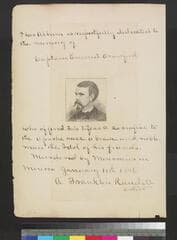 This Album is respectfully dedicated to
the memory of
Captain Emmet Crawford
who offered his life as a sacrifice to
the Apache race a brave and noble
man the Idol of his friends.
Murdered by Mexicans in
Mexico January 11th 1886
A. Frankli Randall